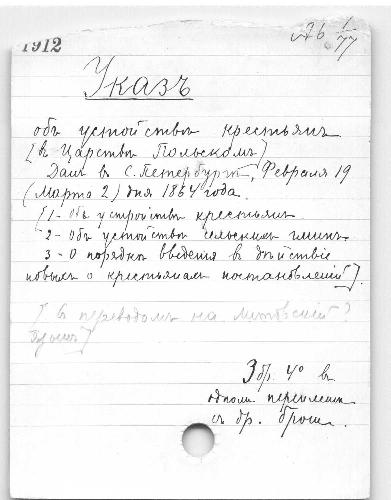 1912
Аб 1/77
Указъ
объ устойствѣ крестьянъ
[въ Царствѣ Польскомъ]
Данъ в С. Петербургѣ, Февраля 19
(Марта 2) дня 1864 года.
[1 - Объ устройствѣ крестьянъ
2 - объ устойствѣ сельскихъ гминъ
3 - О порядкѣ введения в дѣйствие
новыхъ о крестьянахъ постановлений].
[С переводомъ на литовский?
языкъ]
3 бр. 4° в
одномъ переплетѣ
съ др. брош.